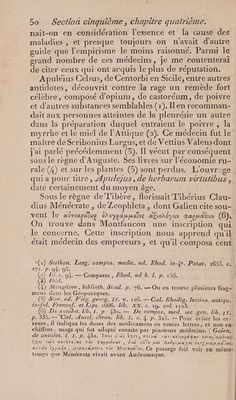 50 Section cinquième, chapitre quatrième.
nait-on en considération l'essence et la cause des
maladies, et presque toujours on n'avait d'autre
guide que l'empirisme le moins raisonné. Parmi le
grand nombre de ces médecins, je me contenterai
de citer ceux qui ont acquis le plus de réputation.
Apuléius Celsus, de Centorbi en Sicile, entre autres
antidotes, découvrit contre la rage un remède fort
célèbre, composé d'opium, de castoréum, de poivre
et d'autres substances semblables (1). Il en recomman-
dait aux personnes atteintes de la pleurésie un autre
dans la préparation duquel entraient le poivre, la
myrrhe et le miel de l'Attique (2). Ce médecin fut le
maître de Scribonius Largus, et de Vettius Valens dont
j'ai parlé précédemment (3). Il vécut par conséquent
sous le règne d'Auguste. Ses livres sur l'économie ru-
rale (4) et sur les plantes (5) sont perdus. L'ouvrage
qui a pour titre, Apulejus, de herbarum virtutibus,
date certainement du moyen âge.
Sous le règne de Tibère, florissait Tibérius Clau-
dius Ménécrate, de Zéophleta, dont Galien cite sou-
vent le (6).
On trouve dans Montfaucon une inscription qui
le concerne. Cette inscription nous apprend qu'il
était médecin des empereurs, et qu'il composa cent
(1) Scribon. Larg. compos. medic. ed. Rhod. in-4°. Patav. 1655. c.
171. p. 94. 95.
(2) Id. c. 94. — Comparez, Rhod. ad h. l. p. 156.
(3) Ibid.
(4) — On en trouve plusieurs frag-
mens dans les Géoponiques.
(5) — Cael. Rhodig. lection. antiqu.
in-fol. Francof. et Lips. 1666. lib. XX. c. 19. col. 1123.
(6) De antidot. lib. — De compos. med. sec. gen. lib.
p. 335. — Cael. Aurel. chron. lib. I. c. 4. p. 323. — Pour éviter les er-
reurs, il indiqua les doses des médicamens en toutes lettres, et non en
chiffres, usage qui fut adopté ensuite par plusieurs médecins.
Ce passage fait voir en même
temps que Ménécrate vivait avant Andromaque.